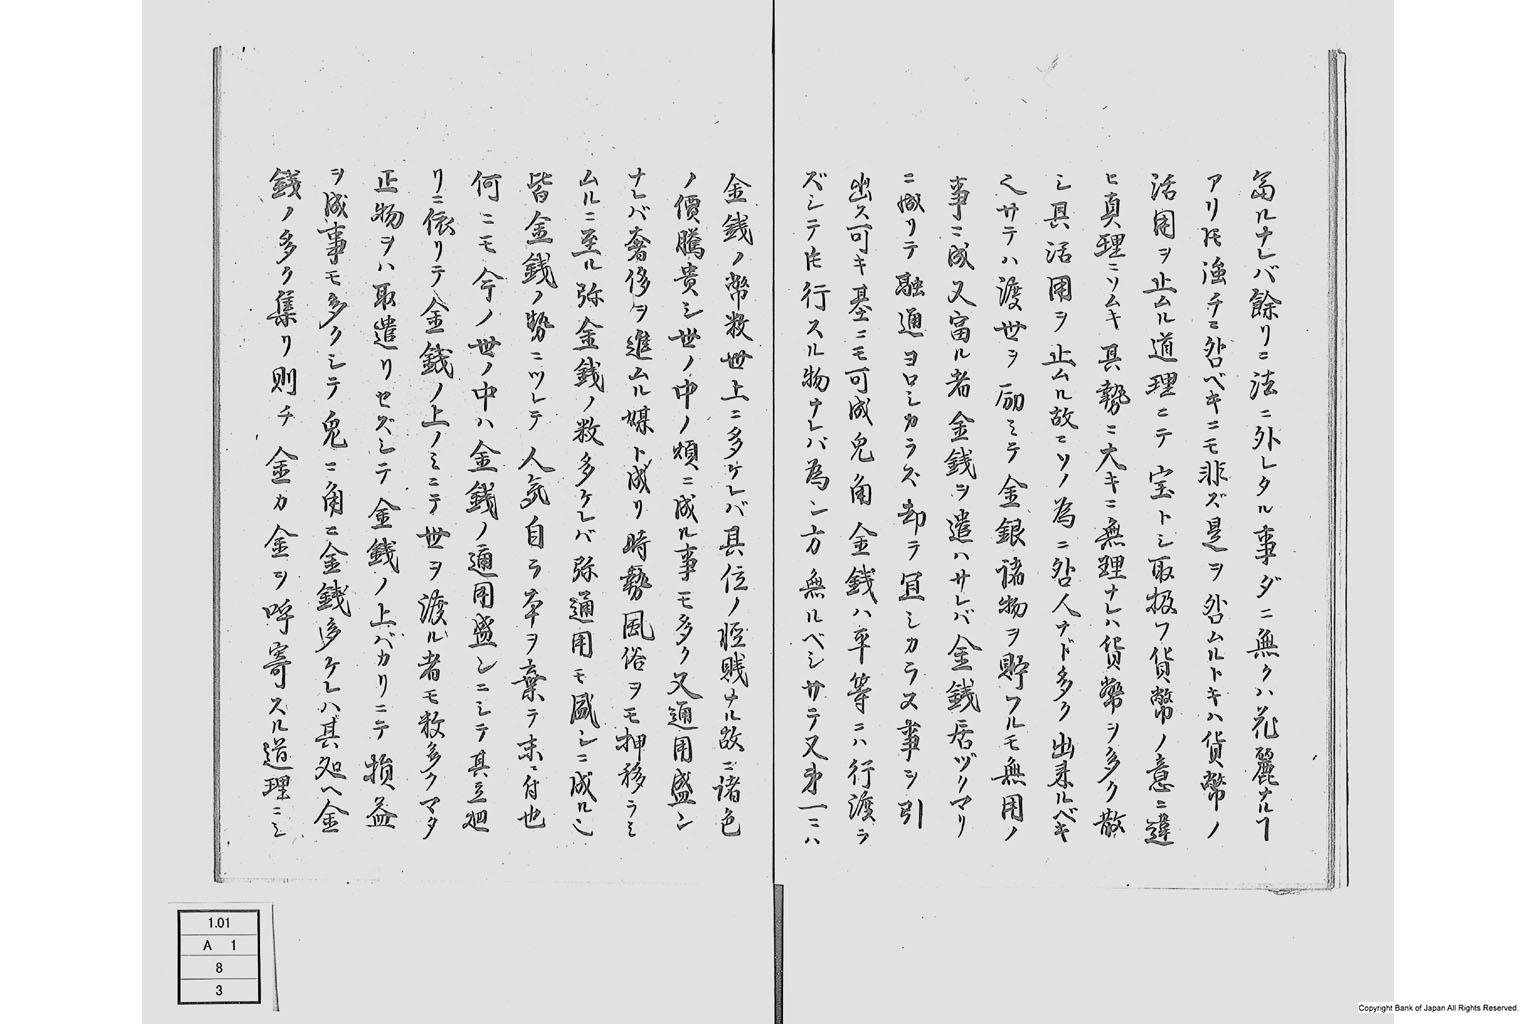 富ルナレバ餘リニ法ニ外レタル事ダニ無クハ花麗ナルヿ
アリ𪜈強チニ咎ベキニモ非ズ是ヲ咎ムルトキハ貨幣ノ
活用ヲ止ムル道理ニテ宝トシ取扱フ貨幣ノ意ニ違
ヒ真理ニソムキ其勢ニ大キニ無理ナレハ貨幣ヲ多ク散
シ其活用ヲ止ムル故ニソノ為ニ咎人ナド多ク出来ルベキ
也サテハ渡世ヲ励ミテ金銀諸物ヲ貯フルモ無用ノ
事ニ成又富ル者金銭ヲ遣ハサレバ金銭居ヅクマリ
ニ成リテ融通ヨロシカラズ却テ宜シカラヌ事ヲ引
出ス可キ基ニモ可成兎角金銭ハ平等ニハ行渡ラ
ズシテ片行スル物ナレバ為ン方無ルベシサテ又第一ニハ
金銭ノ幣数世上ニ多ケレバ其位ノ軽賤ナル故ニ諸色
ノ價騰貴シ世ノ中ノ煩ニ成ル事モ多ク又通用盛ン
ナレバ奢侈ヲ進ムル媒ト成リ時勢風俗ヲモ押移ラシ
ムルニ至ル弥金銭ノ数多ケレバ弥通用モ盛ンニ成ル也
皆金銭ノ勢ニツレテ人気自ラ本ヲ棄テ末ニ付也
何ニモ今ノ世ノ中ハ金銭ノ通用盛ンニシテ其立廻
リニ依リテ金銭ノ上ノミニテ世ヲ渡ル者モ数多クマタ
正物ヲハ取遣リセズシテ金銭ノ上バカリニテ損益
ヲ成事モ多クシテ兎ニ角ニ金銭多ケレハ其処ヘ金
銭ノ多ク集リ則チ金カ金ヲ呼寄スル道理ニシ
1.01
A 1
8
3
Copyright Bank of Japan All Rights Reserved.